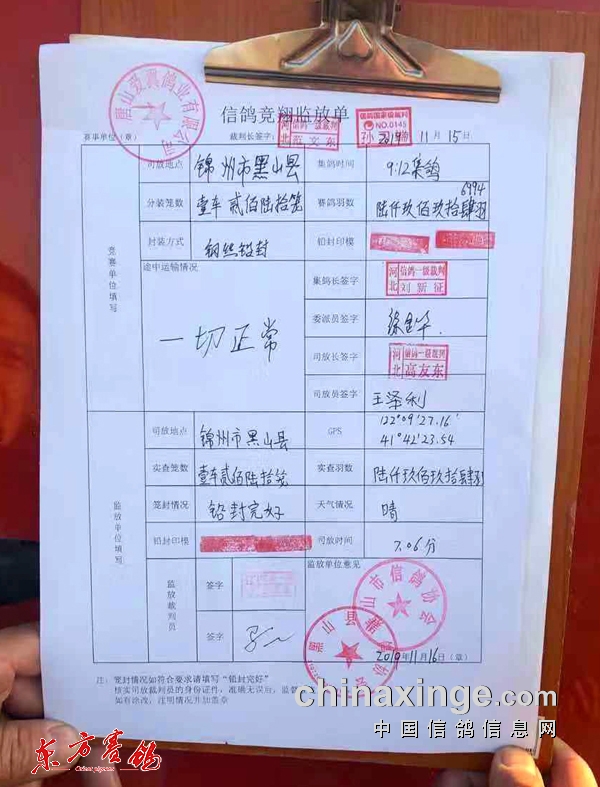 信鸽竞翔监放单
赛事单位（章） 裁判长签字： 河北 信鸽一级裁判 范文东 信鸽国家级裁判 NO.0145 2019年11月15日
唐山爱翼鸽业有限公司
竞赛单位填写
司放地点 锦州市黑山县 集鸽时间 9:12集鸽
分装笼数 壹车贰佰陆拾笼 赛鸽羽数 陆仟玖佰玖拾肆羽 6994
封装方式 钢丝铅封 铅封印模
途中运输情况 一切正常
集鸽长签字 河北 信鸽一级裁判 刘新征
委派员签字
司放长签字 河北 信鸽一级裁判 高友东
司放员签字 王泽利
监放单位填写
司放地点 锦州市黑山县 GPS 122°09'27.16 41°42'23.54
实查笼数 壹车贰佰陆拾笼 实查羽数 陆仟玖佰玖拾肆羽
笼封情况 铅封完好 天气情况 晴
铅封印模 司放时间 7.06分
监放裁判员 签字 监放单位意见
签字
黑山县
唐山市信鸽协会
2019年11月16日（章）
注：笼封情况如符合要求请填写“铅封完好”
核实司放裁判员的身份证件，准确无误后，监督
如有涂改，注明情况并加盖章
chinaxinge.com
中国信鸽信息网
东方赛鸽